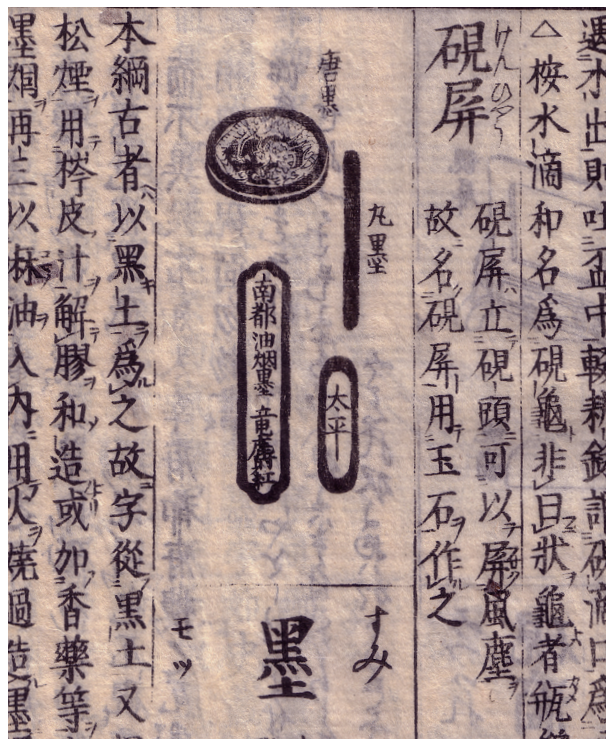 遇水出則吐盃中輟耕録謂硯滴口爲
△桉水滴和名爲硯龜非曰狀龜者瓶
けんひやう
硯屏
硯屏立硯頭可以屏風塵
故名硯屏用玉石作之
丸墨
太平
唐墨
南都油烟墨 竜麝紅
すみ
墨
モツ
本綱古者以黒土爲之故字從黒土又
松煙用梣皮汁解膠和造或加香藥等
墨烟再三以麻油入內用火燒過造墨